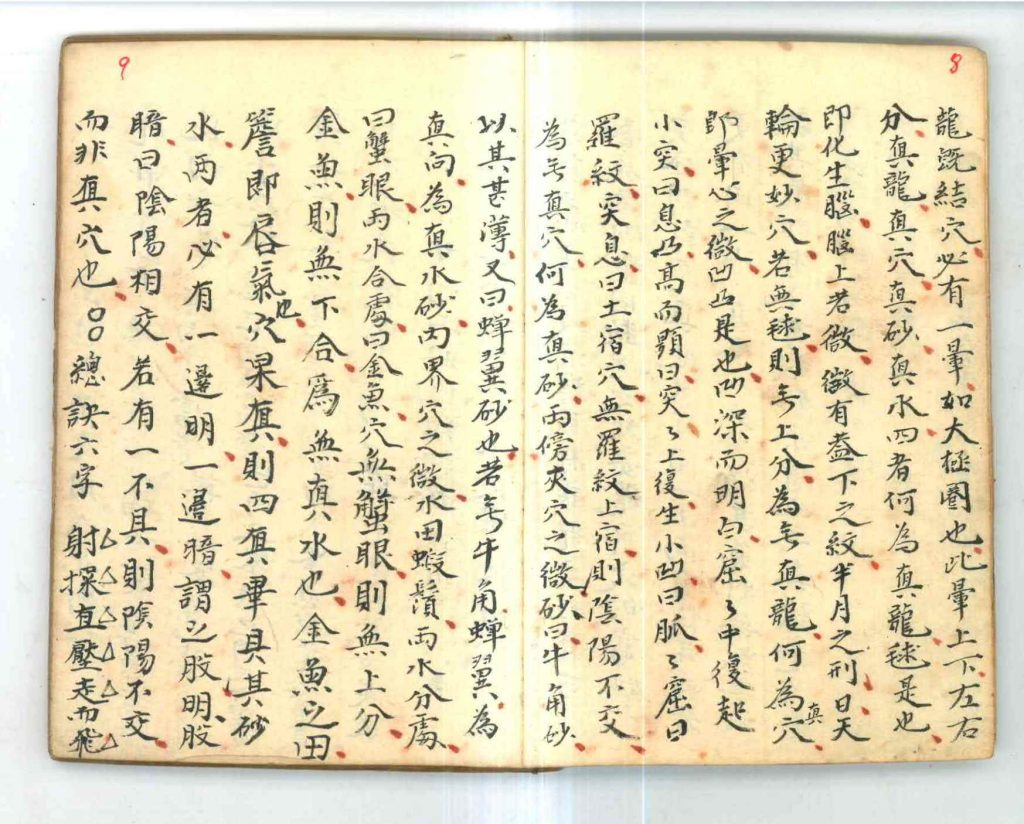 8
龍既結穴必有一暈如太極圈也此暈上下左右
分真龍真穴真砂真水四者何為真龍毬是也
即化生腦腦上若微微有益下之紋半月之形曰天
輪更妙穴若無毬則無上分為無真龍何為真穴
即暈心之微凹凸是也凹深而明曰窟々中復起
小突曰息凸高而顯曰突々上復生小凹曰脈々窟曰
羅紋突息曰土宿穴無羅紋土宿則陰陽不交
為無真穴何為真砂兩傍夾穴之微砂曰牛角砂
9
以其甚薄又曰蟬翼砂也若無牛角蟬翼為
真向為真水砂内界穴之微水田蝦鬚兩水分處
曰蟹眼兩水合處曰金魚穴無蟹眼則無上分
金魚則無下合為無真水也金魚之田
簷即唇氣也穴果真則四真畢具其砂
水兩者必有一邊明一邊暗謂之股明股
暗曰陰陽相交若有一不具則陰陽不交
而非真穴也 〇〇總訣六字 射探直壓走而飛